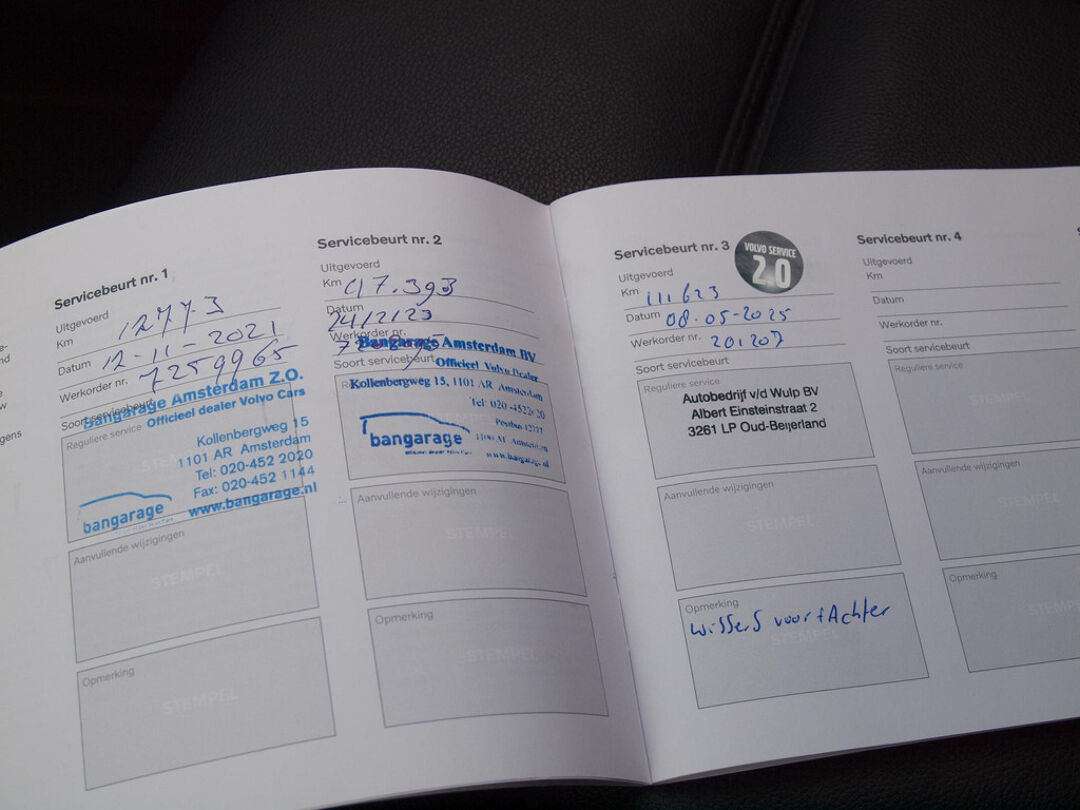 Servicebeurt nr. 1
Uitgevoerd
Km 12773
Datum 12-11-2021
Werkorder nr. 7259965
Soort servicebeurt
Reguliere service
Bangarage Amsterdam Z.O.
Officieel dealer Volvo Cars
Kollenbergweg 15
1101 AR Amsterdam
Tel: 020-452 2020
Fax: 020-452 1144
www.bangarage.nl
bangarage
Aanvullende wijzigingen
STEMPEL
Opmerking
STEMPEL
Servicebeurt nr. 2
Uitgevoerd
Km 47.393
Datum
24/2/23
Werkorder nr.
Soort servicebeurt
Bangarage Amsterdam BV
Officieel Volvo Dealer
Kollenbergweg 15, 1101 AR Amsterdam
Tel: 020-4522020
Postbus 12377
www.bangarage.nl
bangarage
Aanvullende wijzigingen
STEMPEL
Opmerking
STEMPEL
Servicebeurt nr. 3
VOLVO SERVICE
2.0
Uitgevoerd
Km 111623
Datum 08-05-2025
Werkorder nr. 201207
Soort servicebeurt
Reguliere service
Autobedrijf v/d Wulp BV
Albert Einsteinstraat 2
3261 LP Oud-Beijerland
Aanvullende wijzigingen
STEMPEL
Opmerking
wissers voor+Achter
STEMPEL
Servicebeurt nr. 4
Uitgevoerd
Km
Datum
Werkorder nr.
Soort servicebeurt
Reguliere service
STEMPEL
Aanvullende wijzigingen
STEMPEL
Opmerking
STEMPEL